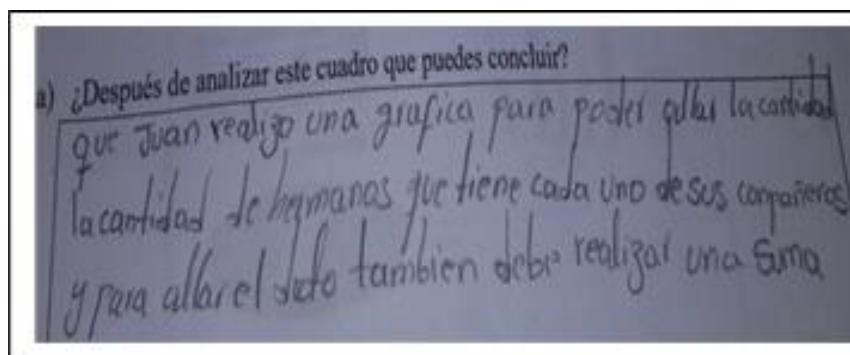 a) ¿Después de analizar este cuadro que puedes concluir?
que Juan realizo una grafica para poder allar la cantidad
la cantidad de hermanos que tiene cada uno de sus compañeros
y para allar el dato tambien debio realizar una suma